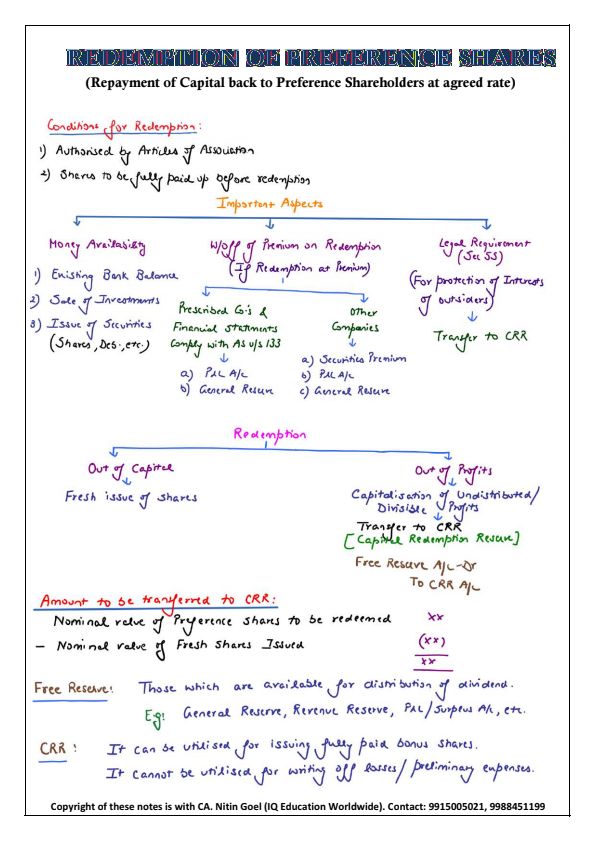 REDEMPTION OF PREFERENCE SHARES
(Repayment of Capital back to Preference Shareholders at agreed rate)
Conditions for Redemption:
1) Authorised by Articles of Association
2) Shares to be fully paid up before redemption
Important Aspects
Money Availability
1) Existing Bank Balance
2) Sale of Investments
3) Issue of Securities
(Shares, Deb., etc.)
W/off of Premium on Redemption
(If Redemption at Premium)
Prescribed Co's &
Financial Statments
Comply with AS u/s 133
a) P&L A/c
b) General Reserve
Other
Companies
a) Securities Premium
b) P&L A/c
c) General Reserve
Legal Requirement
(Sec 55)
(For protection of Interests
of outsiders)
Transfer to CRR
Redemption
Out of Capital
Fresh issue of shares
Out of Profits
Capitalisation of Undistributed/
Divisible Profits
Transfer to CRR
[Capital Redemption Reserve]
Free Reserve A/c - Dr
To CRR A/c
Amount to be transferred to CRR:
Nominal value of Preference shares to be redeemed xx
- Nominal value of Fresh Shares Issued (xx)
xx
Free Reserve: Those which are available for distribution of dividend.
Eg: General Reserve, Revenue Reserve, P&L/Surplus A/c, etc.
CRR: It can be utilised for issuing fully paid bonus shares.
It cannot be utilised for writing off losses/preliminary expenses.
Copyright of these notes is with CA. Nitin Goel (IQ Education Worldwide). Contact: 9915005021, 9988451199